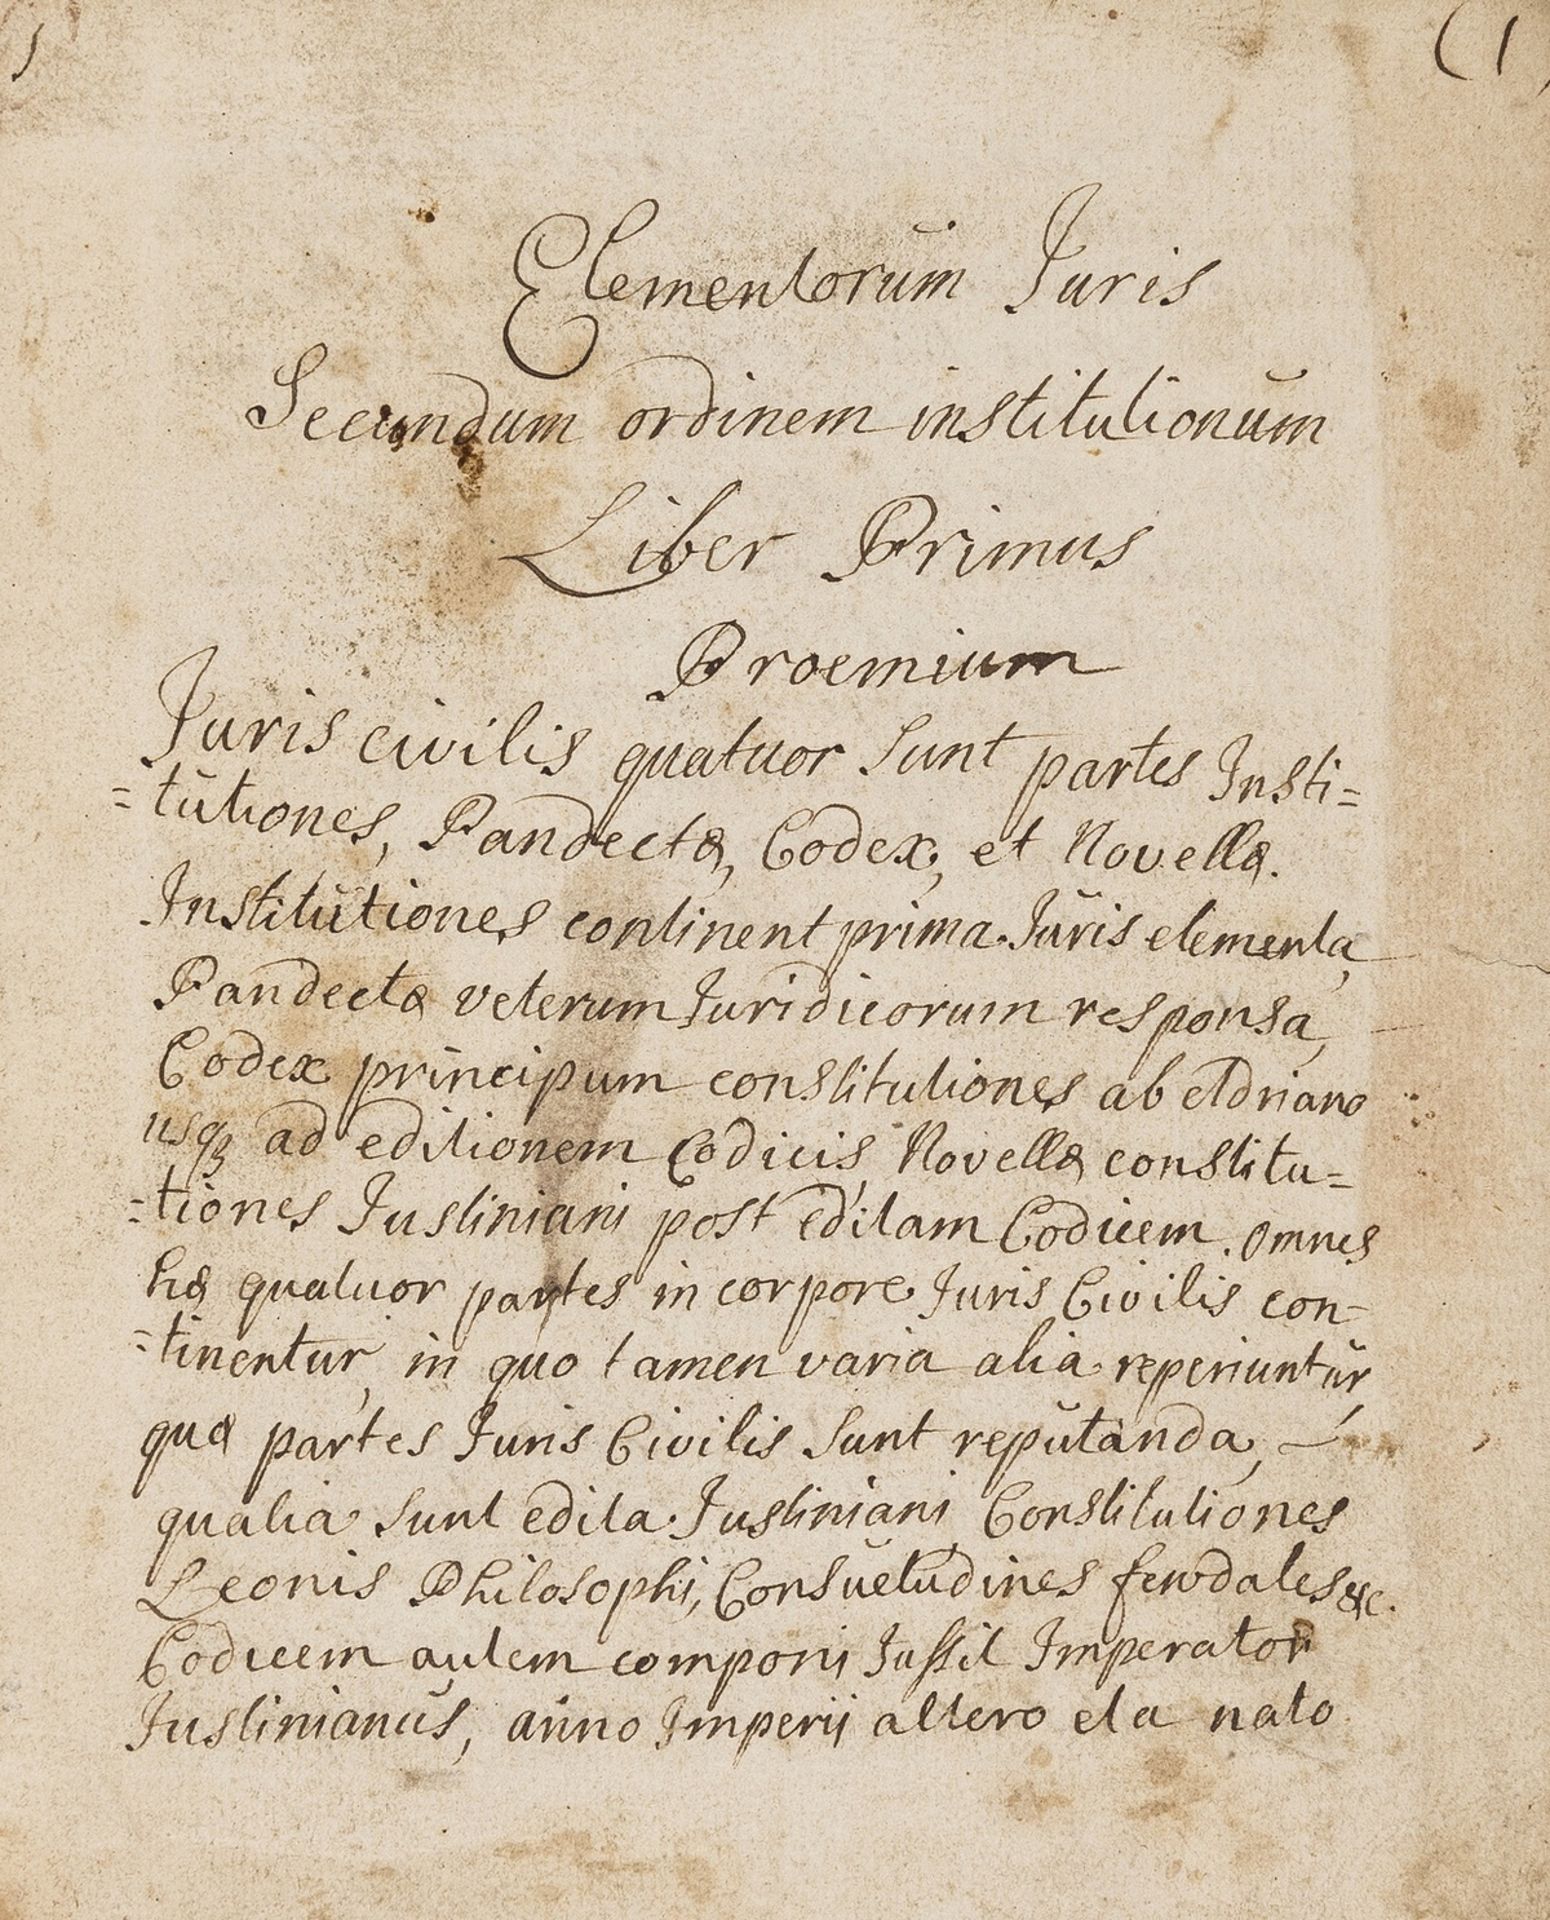 (1)
Elementorum Juris
Secundum ordinem institutionum
Liber Primus
Proemium
Juris civilis quatuor sunt partes Insti=
=tutiones, Pandectæ, Codex, et Novellæ.
Institutiones continent prima Juris elementa,
Pandectæ veterum Juridicorum responsa,
Codex principum constitutiones ab Adriano
usq3 ad editionem Codicis, Novellæ constitu=
=tiones Justiniani post editam Codicem. omnes
hæ quatuor partes in corpore Juris Civilis con=
=tinentur, in quo tamen varia alia reperiuntur,
quæ partes Juris Civilis sunt reputanda, —
qualia sunt edita Justiniani, Constitutiones
Leonis Philosophi, Consuetudines fewdales &c.
Codicem autem componi Jussit Imperator
Justinianus, anno Imperij altero et a nato